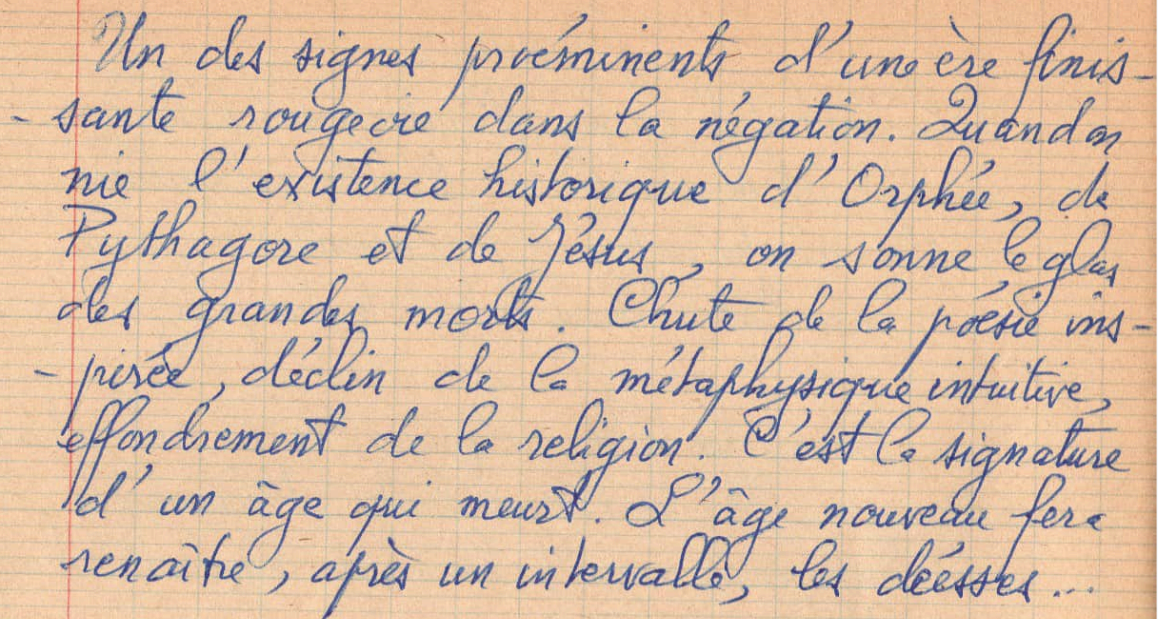 Un des signes proéminents d'une ère finis-
-sante rougeoie dans la négation. Quand on
nie l'existence historique d'Orphée, de
Pythagore et de Jésus, on sonne le glas
des grandes morts. Chute de la poésie ins-
-pirée, déclin de la métaphysique intuitive,
effondrement de la religion. C'est la signature
d'un âge qui meurt. L'âge nouveau fera
renaître, après un intervalle, les déesses...